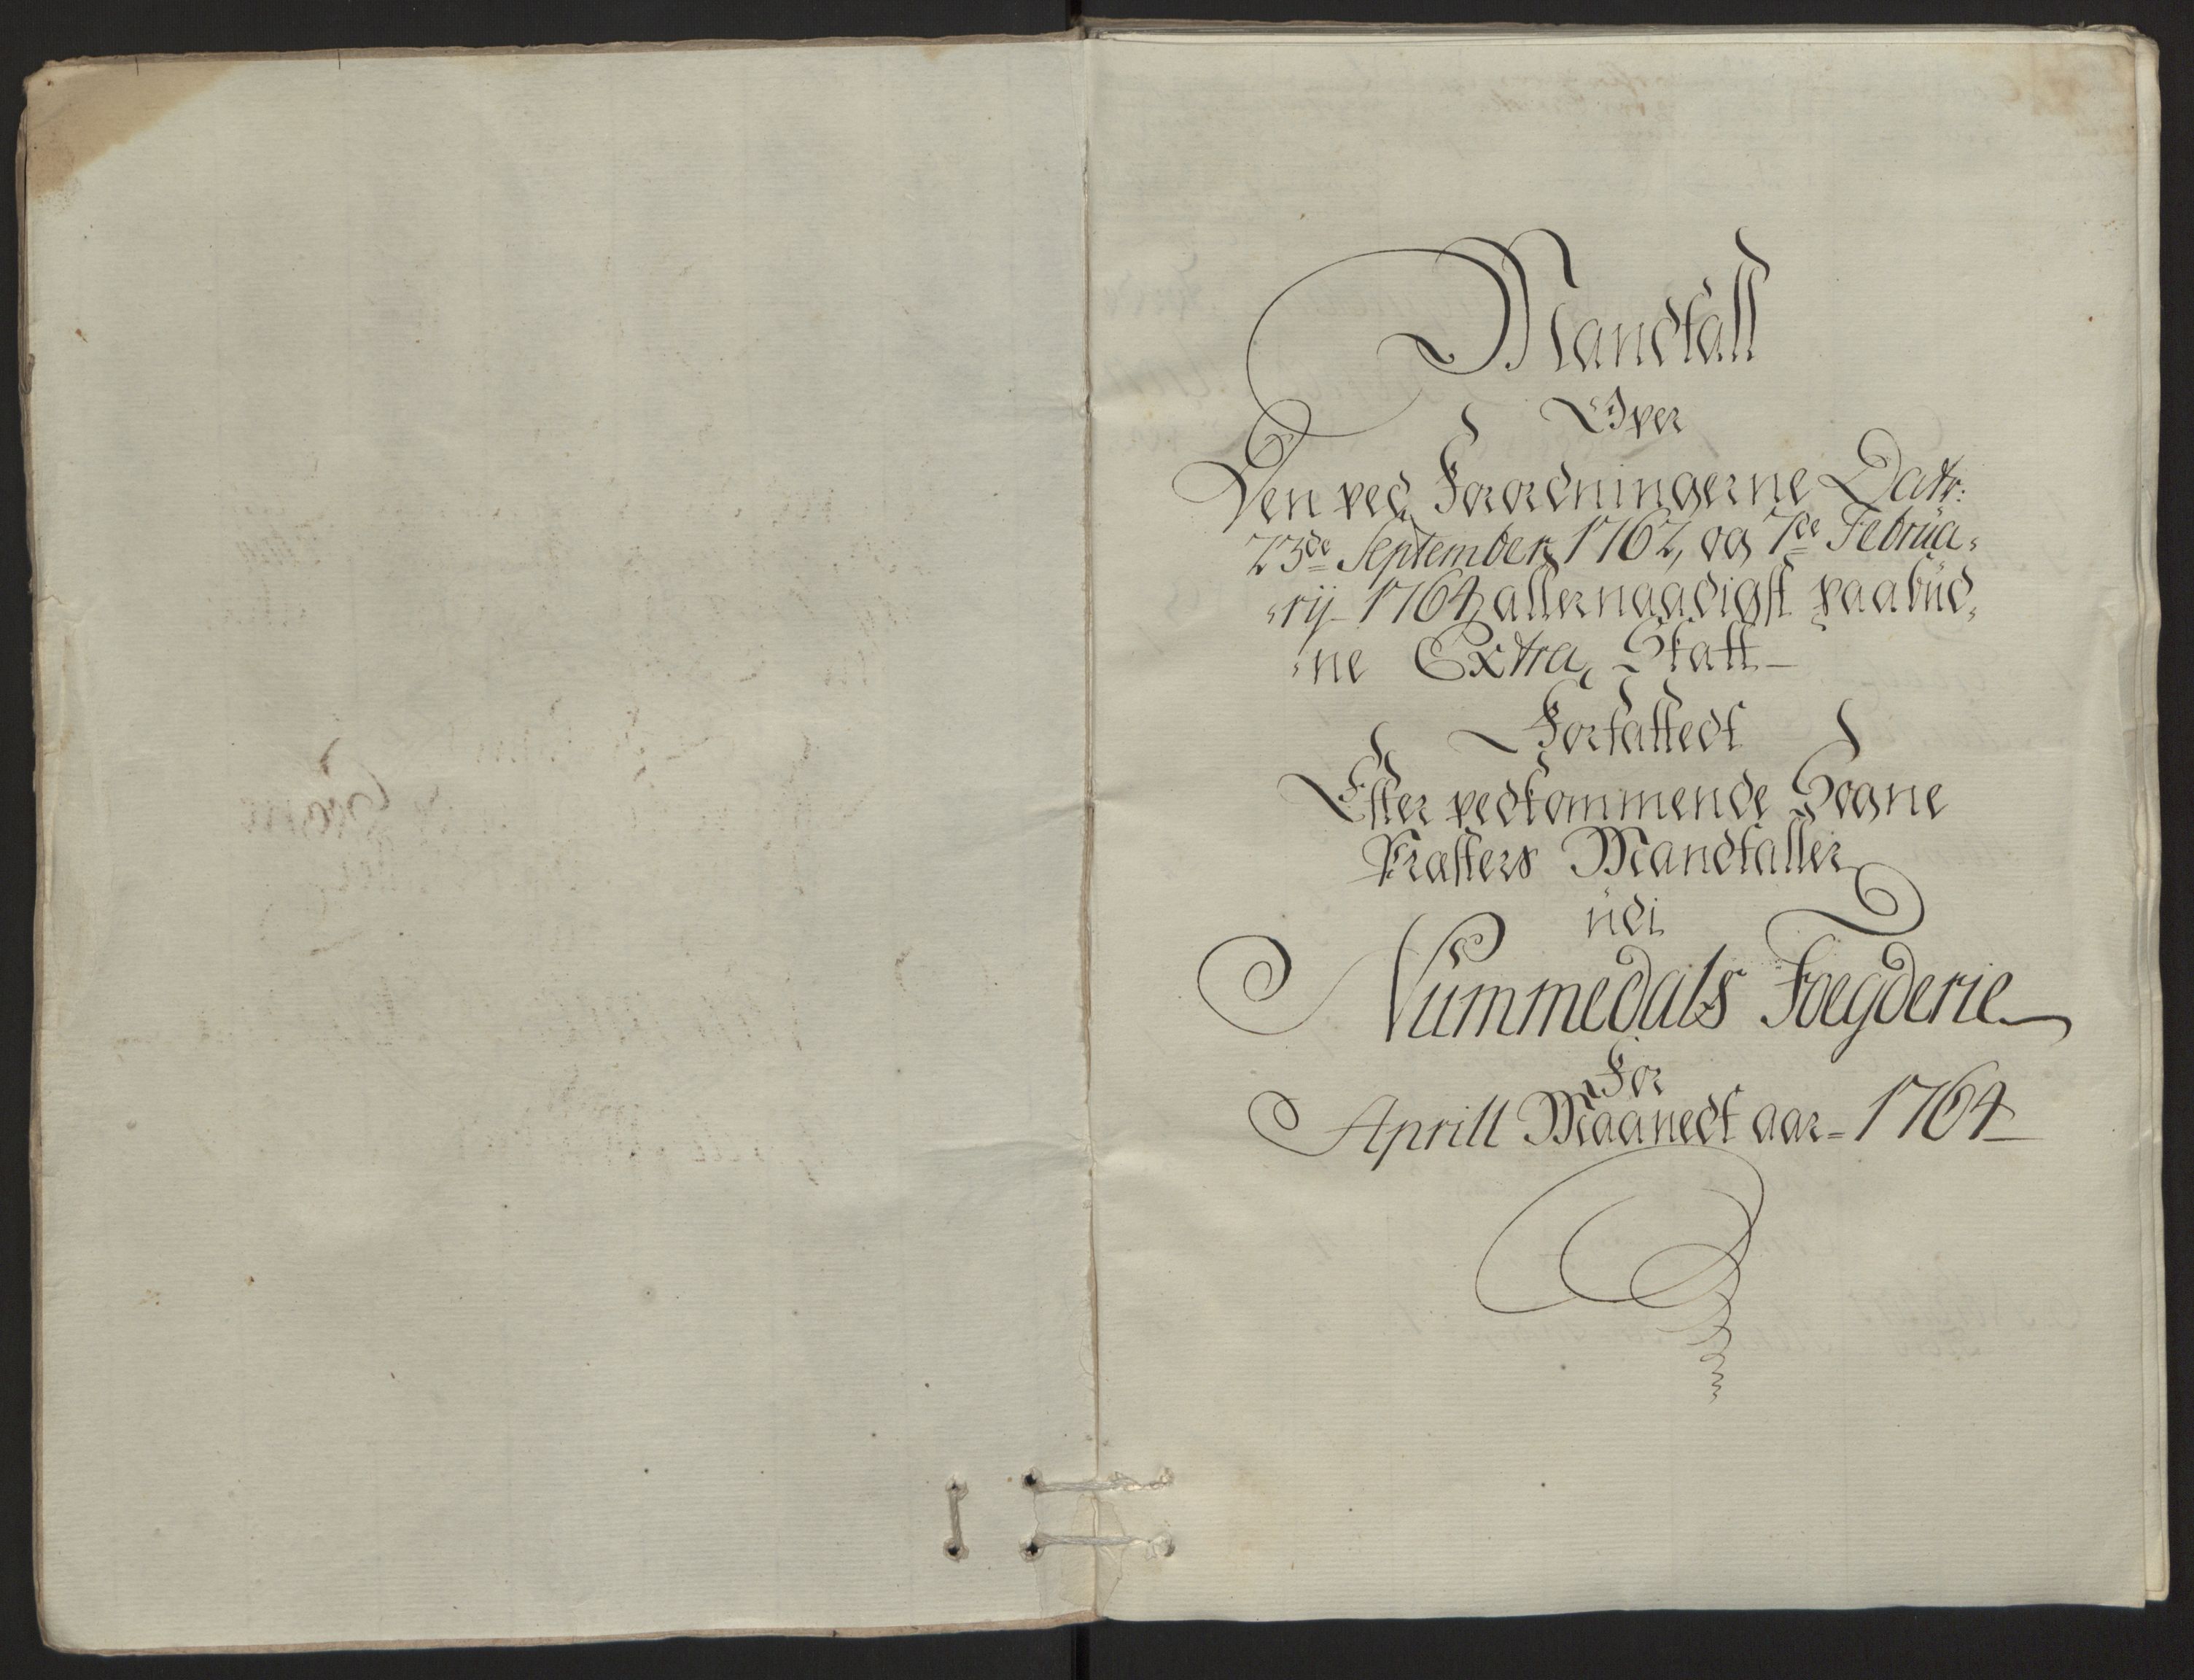 Mandtall
Over
Den ved Forordningerne Datr:
23de September 1762, og 7de Februa-
-rij 1764 allernaadigst paabud-
-ne Extra Skatt
Forfattedt
Efter vedkommende Sogne
Præsters Mandtaller
udi
Nummedals Foegderie
For
Aprill Maanedt aar = 1764